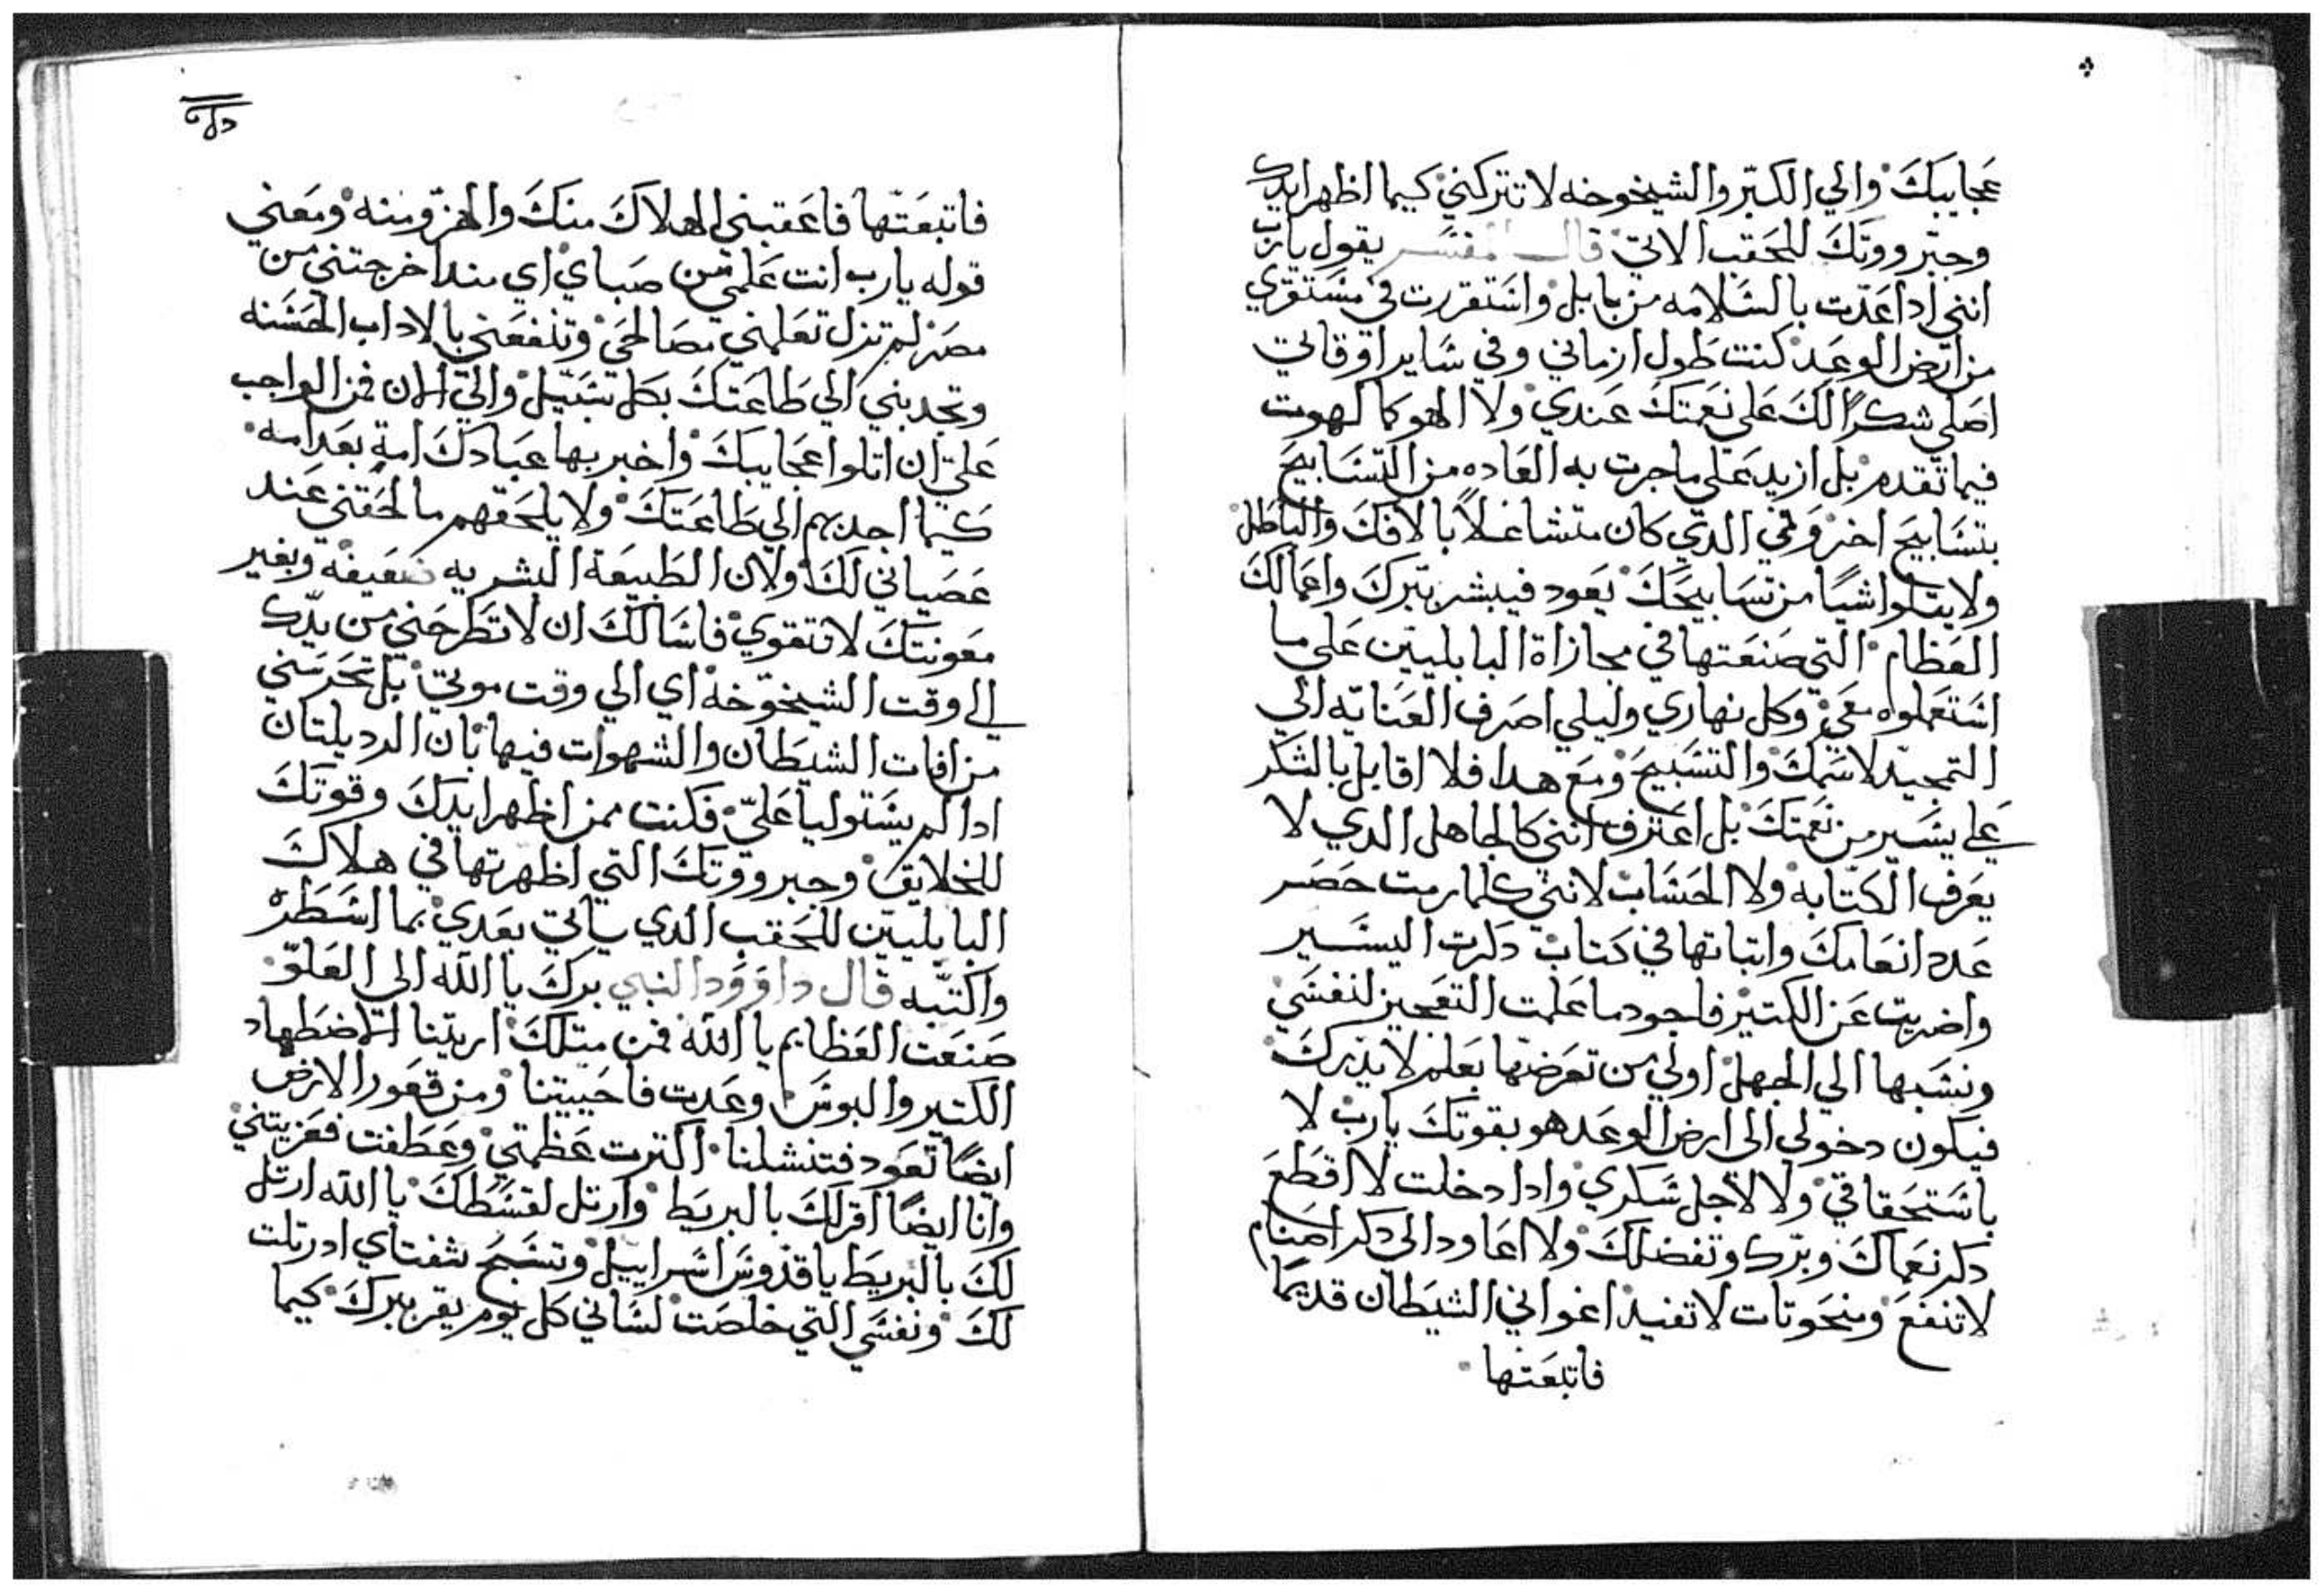 عجايبكَ والي الكبر والشيخوخه لا تتركني كيما اظهر ايدك
وجبرووتكَ للحقب الاتي قال المفسر يقول يارب
انني ادا عدت بالسلامه من بابل واستقررت في مستقري
من ارض الوعد كنت طول ازماني وفي ساير اوقاتي
اصلي شكراً لكَ علي نعمتكَ عندي ولا الهو كما لهوت
فيما تقدم بل ازيد علي ما جرت به العاده من التسابيح
بتسابيح اخر وفمي الدي كان متشاغلاً بالافكَ والباطل
ولا يتلوا شياً من تسابيحكَ يعود فيبشر ببركَ واعمالكَ
العظام التي صنعتها في مجازاة البابليين علي ما
استعملوه معي وكل نهاري وليلي اصرف العنايه الي
التمجيد لاسمكَ والتسبيح ومع هدا فلا اقابل بالشكر
علي يسير من نعمتكَ بل اعترف انني كالجاهل الدي لا
يعرف الكتابه ولا الحساب لانني كلما رمت حصر
عدد انعامكَ واتباتها في كتاب دكرت اليسير
واضربت عن الكتير فاجود ما عملت التعجيز لنفسي
ونسبها الي الجهل اولي من تعرضها بعلم لا يدركَ
فيكون دخولي الي ارض الوعد هو بقوتكَ يارب لا
باستحقاقي ولا لاجل شكري وادا دخلت لا اقطع
دكر نعماكَ وبرك وتفضلكَ ولا اعاود الي دكر اصنام
لا تنفع ومنحوتات لا تفيد اغواني الشيطان قديماً
فاتبعتها
فاتبعتها فاعقبني الهلاكَ منكَ والهزو منه ومعني
قوله يارب انت علمتني من صباي اي مند اخرجتني من
مصر لم تزل تعلمني مصالحي وتنفعني بالاداب الحسنه
وتجدبني الي طاعتكَ بكل سبيل والي الان فمن الواجب
علي ان اتلوا عجايبكَ واخبر بها عبادكَ امة بعد امه
كيما اجدبهم الي طاعتكَ ولا يلحقهم ما لحقني عند
عصياني لكَ ولان الطبيعة البشريه ضعيفه وبغير
معونتكَ لا تتقوي فاسالكَ ان لا تطرحني من يدك
الي وقت الشيخوخه اي الي وقت موتي بل تحرسني
من افات الشيطان والشهوات فيها بان الرديلتان
ادا لم يستوليا عليّ فكنت ممن اظهر ايدكَ وقوتكَ
للخلايق وجبرووتكَ التي اظهرتها في هلاكَ
البابليين للحقب الدي ياتي بعدي بما اسطره
واكتبه قال داوود النبي بركَ يا الله الي العلوّ
صنعت العظايم يا الله فمن متلكَ اريتنا الاضطهاد
الكتير والبوس وعدت فاحييتنا ومن قعور الارض
ايضاً تعود فتنشلنا اكترت عظمتي وعطفت فعزيتني
وانا ايضاً اقر لكَ بالبريط وارتل لقسطكَ يا الله ارتل
لكَ بالبريط يا قدوس اسراييل وتسبح شفتاي ادرتلت
لكَ ونفسي التي خلصت لساني كل يوم يقر ببركَ كيما